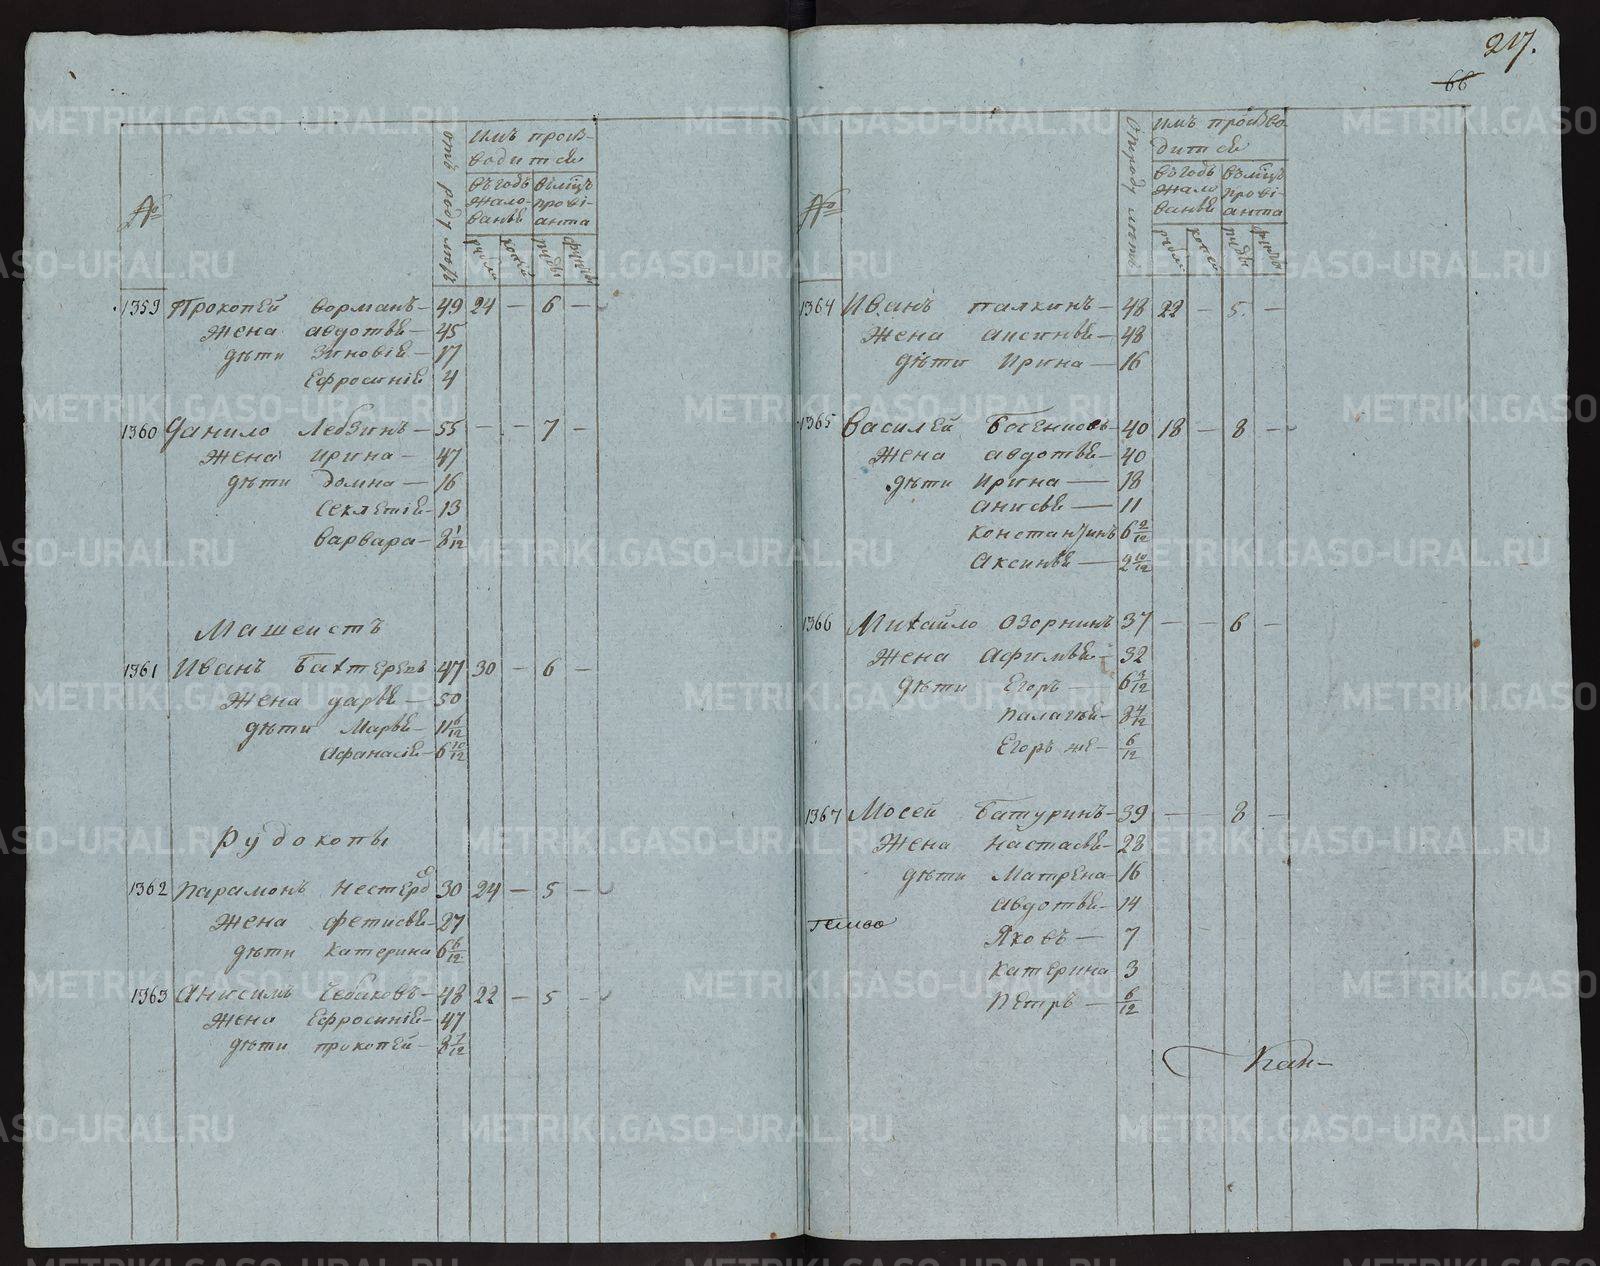 217.
66
№
отъ роду летъ
имъ произ-
водится
въ годъ
жало-
ванье
въ мцъ
прови-
анта
рубли
копеи
пуды
фунты
1359 Прокопей Ворманъ — 49 24 — 6 —
Жена авдотья — 45
дѣти Зиновiй — 17
Ефросинiя 4
1360 Данило Лебзинъ — 55 — — 7 —
Жена ирина — 47
дѣти Домна — 16
Секлетiя — 13
Варвара — 8 1/12
Машеистъ
1361 Иванъ Бахтеревъ 47 30 — 6 —
Жена дарья — 50
дѣти Марья — 11 6/12
Афанасiй — 6 10/12
Рудокопы
1362 Парамонъ Нестеро 30 24 — 5 —
Жена фетисья — 27
дѣти Катерина 6 6/12
1363 Анисимъ Чебаковъ — 48 22 — 5 —
Жена Ефросинiя — 47
дѣти прокопей — 8 7/12
№
отъ роду летъ
имъ произво
дится
въ годъ
жало
ванье
въ мцъ
прови-
анта
рубли
копеи
пуды
фунты
1364 Иванъ палкинъ — 48 22 — 5 —
Жена аксинья — 48
дѣти Ирина — 16
1365 Василей — 40 18 — 8 —
Жена авдотья — 40
дѣти Ирина — 18
анисья — 11
константинъ 6 2/12
Аксинья — 2 10/12
1366 Михайло Озорнинъ 37 — — 6 —
Жена Афимья — 32
дѣти Егоръ — 6 3/12
палагея — 3 4/12
Егоръ же — 6/12
1367 Мосей Батуринъ — 39 — — 8 —
Жена Настасья — 28
дѣти Матрена — 16
Авдотья — 14
Яковъ — 7
Катерина 3
Петръ — 6/12
Кан-
METRIKI.GASO-URAL.RU